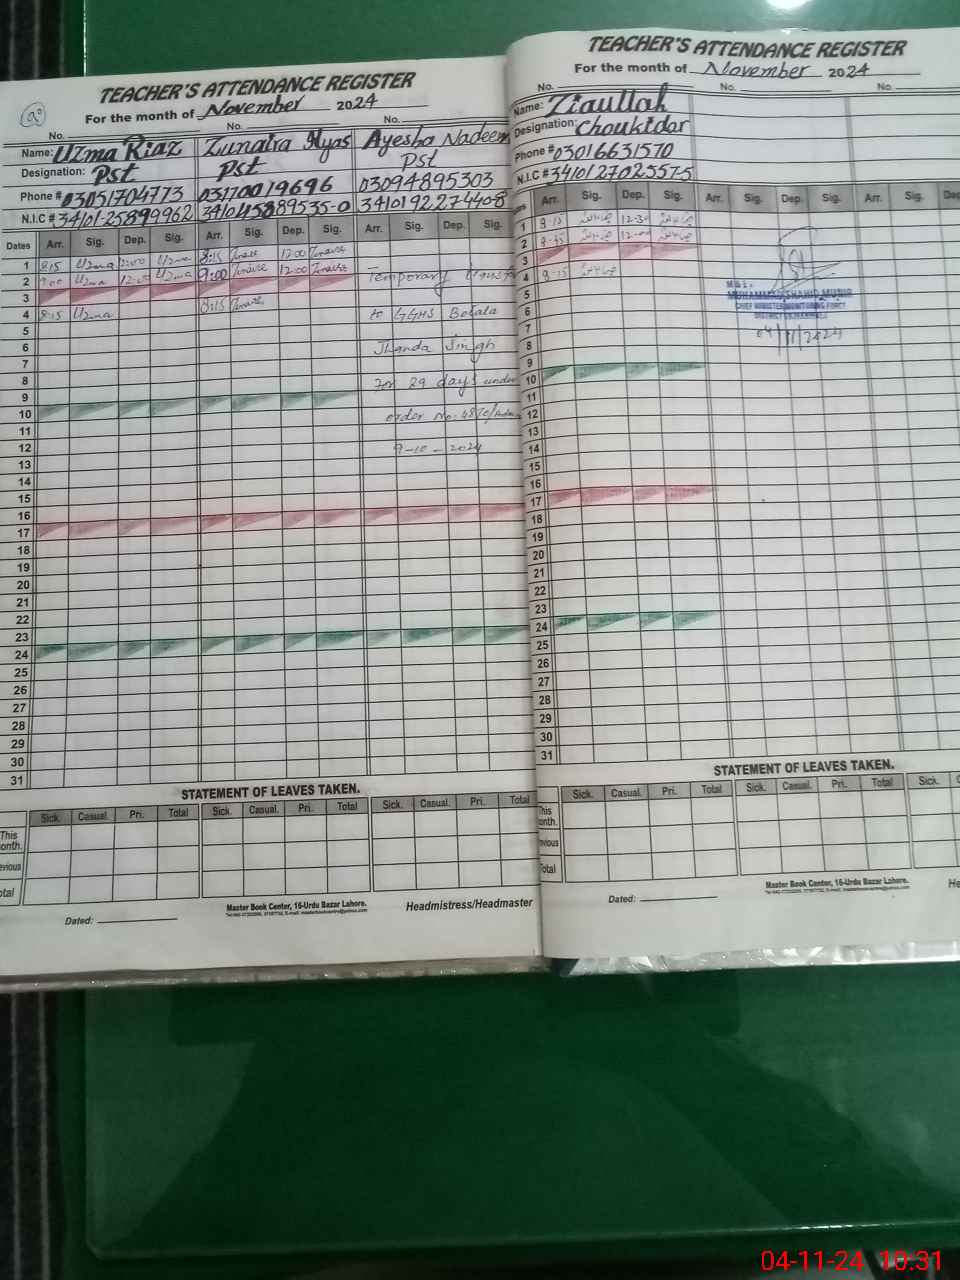 TEACHER'S ATTENDANCE REGISTER
For the month of November 2024
No. No. No.
Name: Uzma Riaz Zunaira Ilyas Ayesha Nadeem
Designation: Pst Pst Pst
Phone # 03051704773 03170019696 03094895303
N.I.C # 34101-2589996 2 3410192274408
Dates Arr. Sig. Dep. Sig. Arr. Sig. Dep. Sig. Arr. Sig. Dep. Sig.
1 8:15 Uzma 12:00 Uzma 8:15 12:00
2 9:00 Uzma 12:00 Uzma 9:00 12:00 Temporary
3
4 8:15 Uzma 8:15 to GGHS Botala
5
6 Jhanda Singh
7
8 For 29 days under
9
10 order No.
11
12 9-10-2024
13
14
15
16
17
18
19
20
21
22
23
24
25
26
27
28
29
30
31
STATEMENT OF LEAVES TAKEN.
Sick. Casual. Pri. Total Sick. Casual. Pri. Total Sick. Casual. Pri. Total
This
onth.
evious
otal
Dated:
Master Book Center, 16-Urdu Bazar Lahore.
Headmistress/Headmaster
TEACHER'S ATTENDANCE REGISTER
For the month of November 2024
No. No. No.
Name: Ziaullah
Designation: Choukidar
Phone # 03016631570
N.I.C # 3410127025575
ates Arr. Sig. Dep. Sig. Arr. Sig. Dep. Sig. Arr. Sig. Dep
1 8-15 12-30
2
3
4 8-15
5
6
7
8
9
10
11
12
13
14
15
16
17
18
19
20
21
22
23
24
25
26
27
28
29
30
31
MUHAMMAD SHAHID MUNIR
CHIEF MINISTER MONITORING FORCE
04/11/2024
STATEMENT OF LEAVES TAKEN.
Sick. Casual. Pri. Total Sick. Casual. Pri. Total Sick.
This
onth.
evious
Total
Dated:
Master Book Center, 16-Urdu Bazar Lahore.
He
04-11-24 10:31